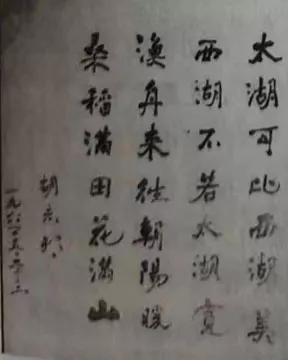 太湖可比西湖美
西湖不若太湖寬
漁舟來往朝陽
桑稻滿田花滿山
胡志明
一九六